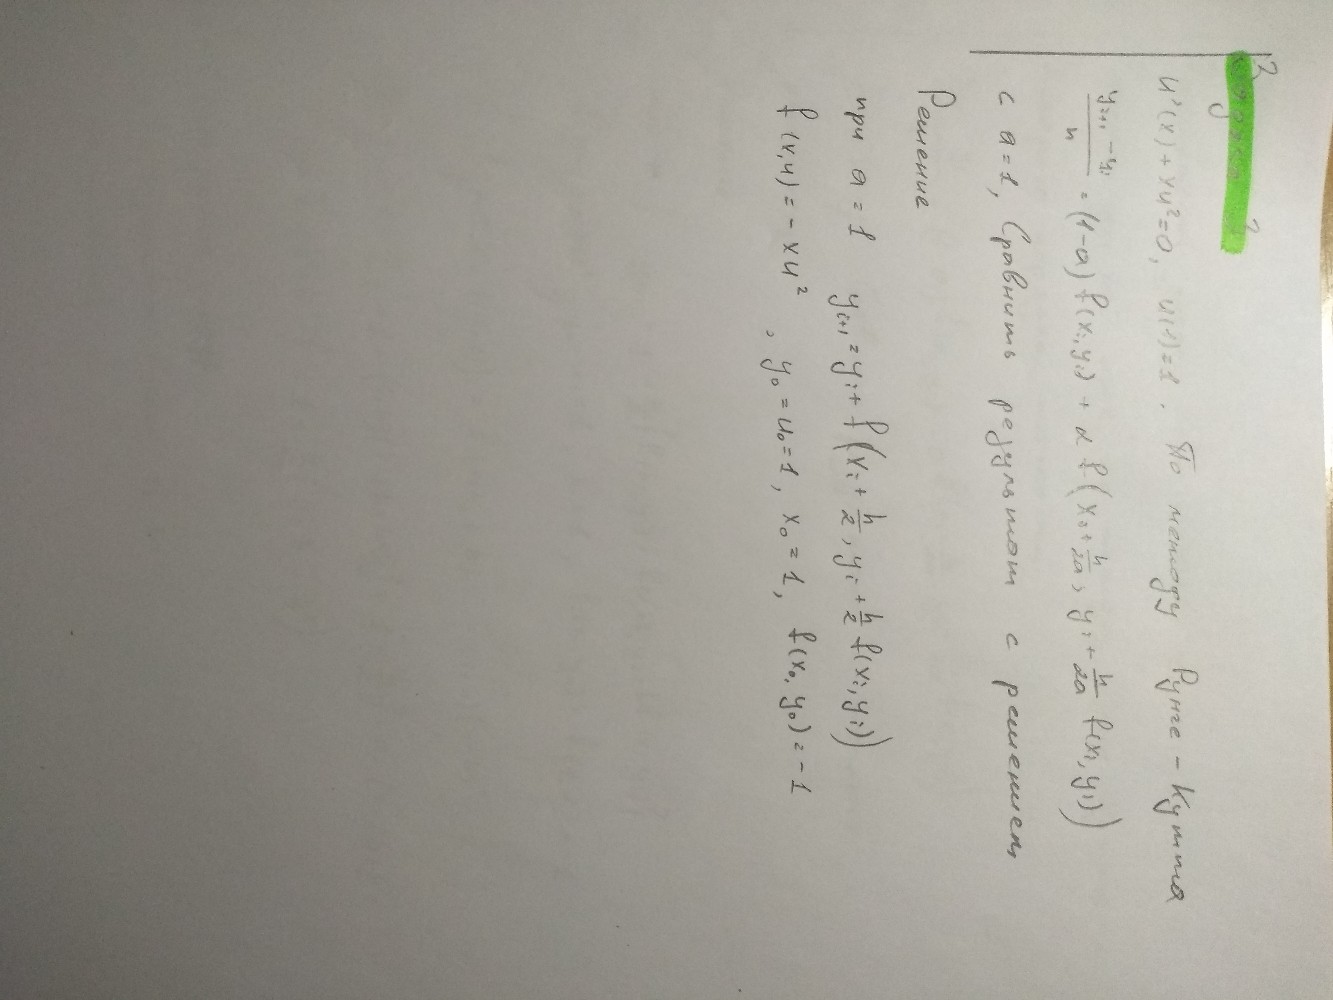 3
u'(x) + xu² = 0, u(1) = 1. По методу Рунге - Кутта
(y_{i+1} - y_i)/h = (1-a) f(x_i, y_i) + α f(x_0 + h/2a, y_i + h/2a f(x_i, y_i))
с a = 1, Сравнить результат с решением
Решение
при a = 1 y_{i+1} = y_i + f(x_i + h/2, y_i + h/2 f(x_i, y_i))
f(x,u) = - xu², y_0 = u_0 = 1, x_0 = 1, f(x_0, y_0) = - 1